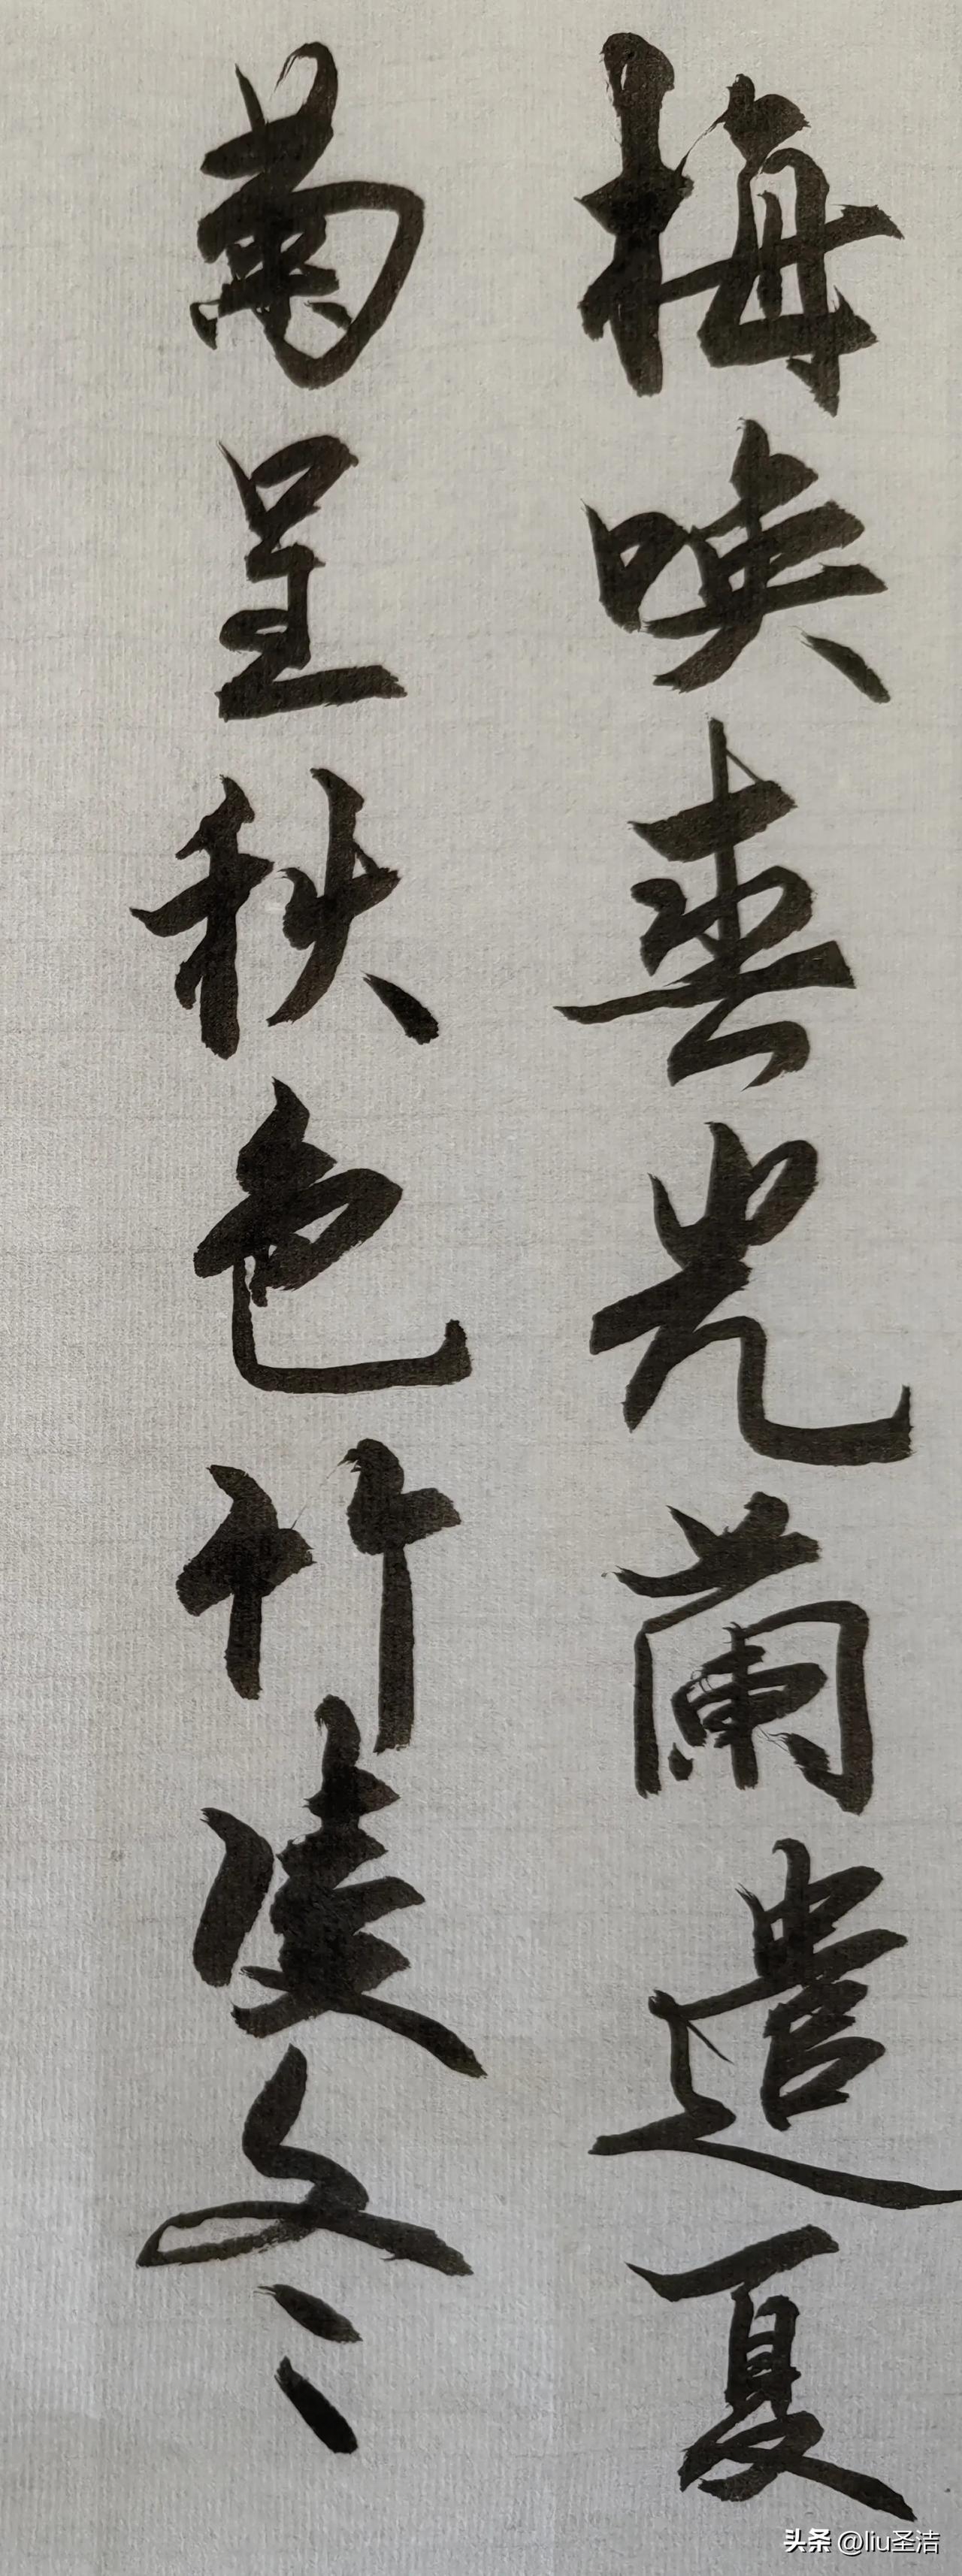 梅唤春光蘭遣夏
菊呈秋色竹凌冬
头条 @liu圣洁